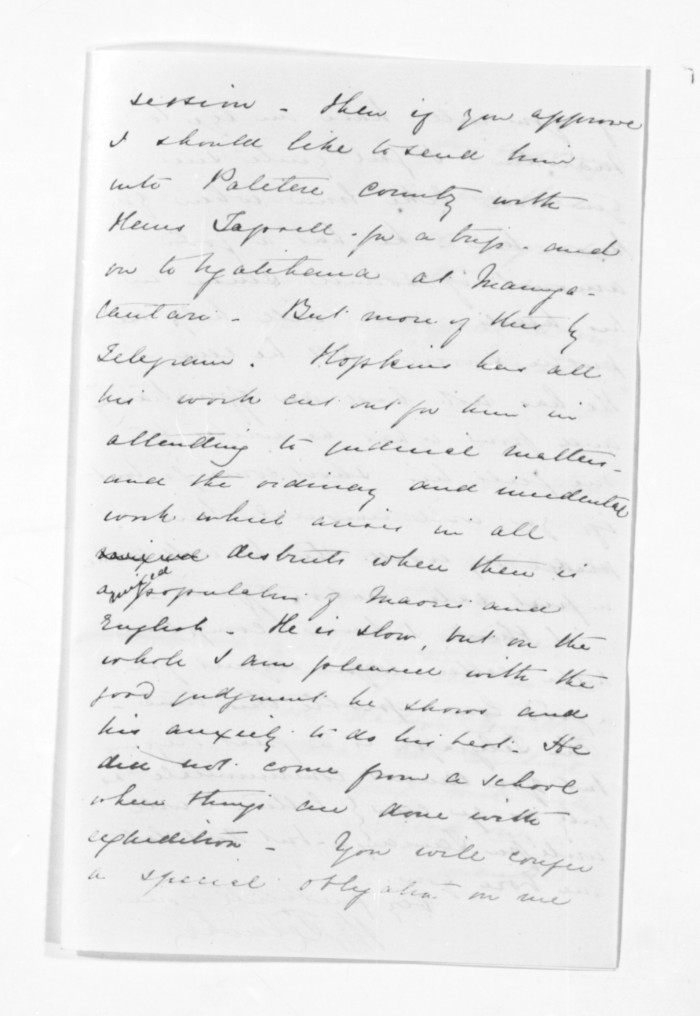 session - then if you approve
I should like to send him
into Patetere county with
Hans Tapsell - for a trip - and
on to Ngatihaua at Maunga-
tautari - But more of this by
Telegram. Hopkins has all
his work cut out for him in
attending to judicial matters -
and the ordinary and incidental
work which arises in all
mixed districts when there is
a mixed population of Maoris and
English - He is slow, but on the
whole I am pleased with the
good judgment he shows and
his anxiety to do his best - He
did not come from a school
where things are done with
expedition - You will confer
a special obligation on me